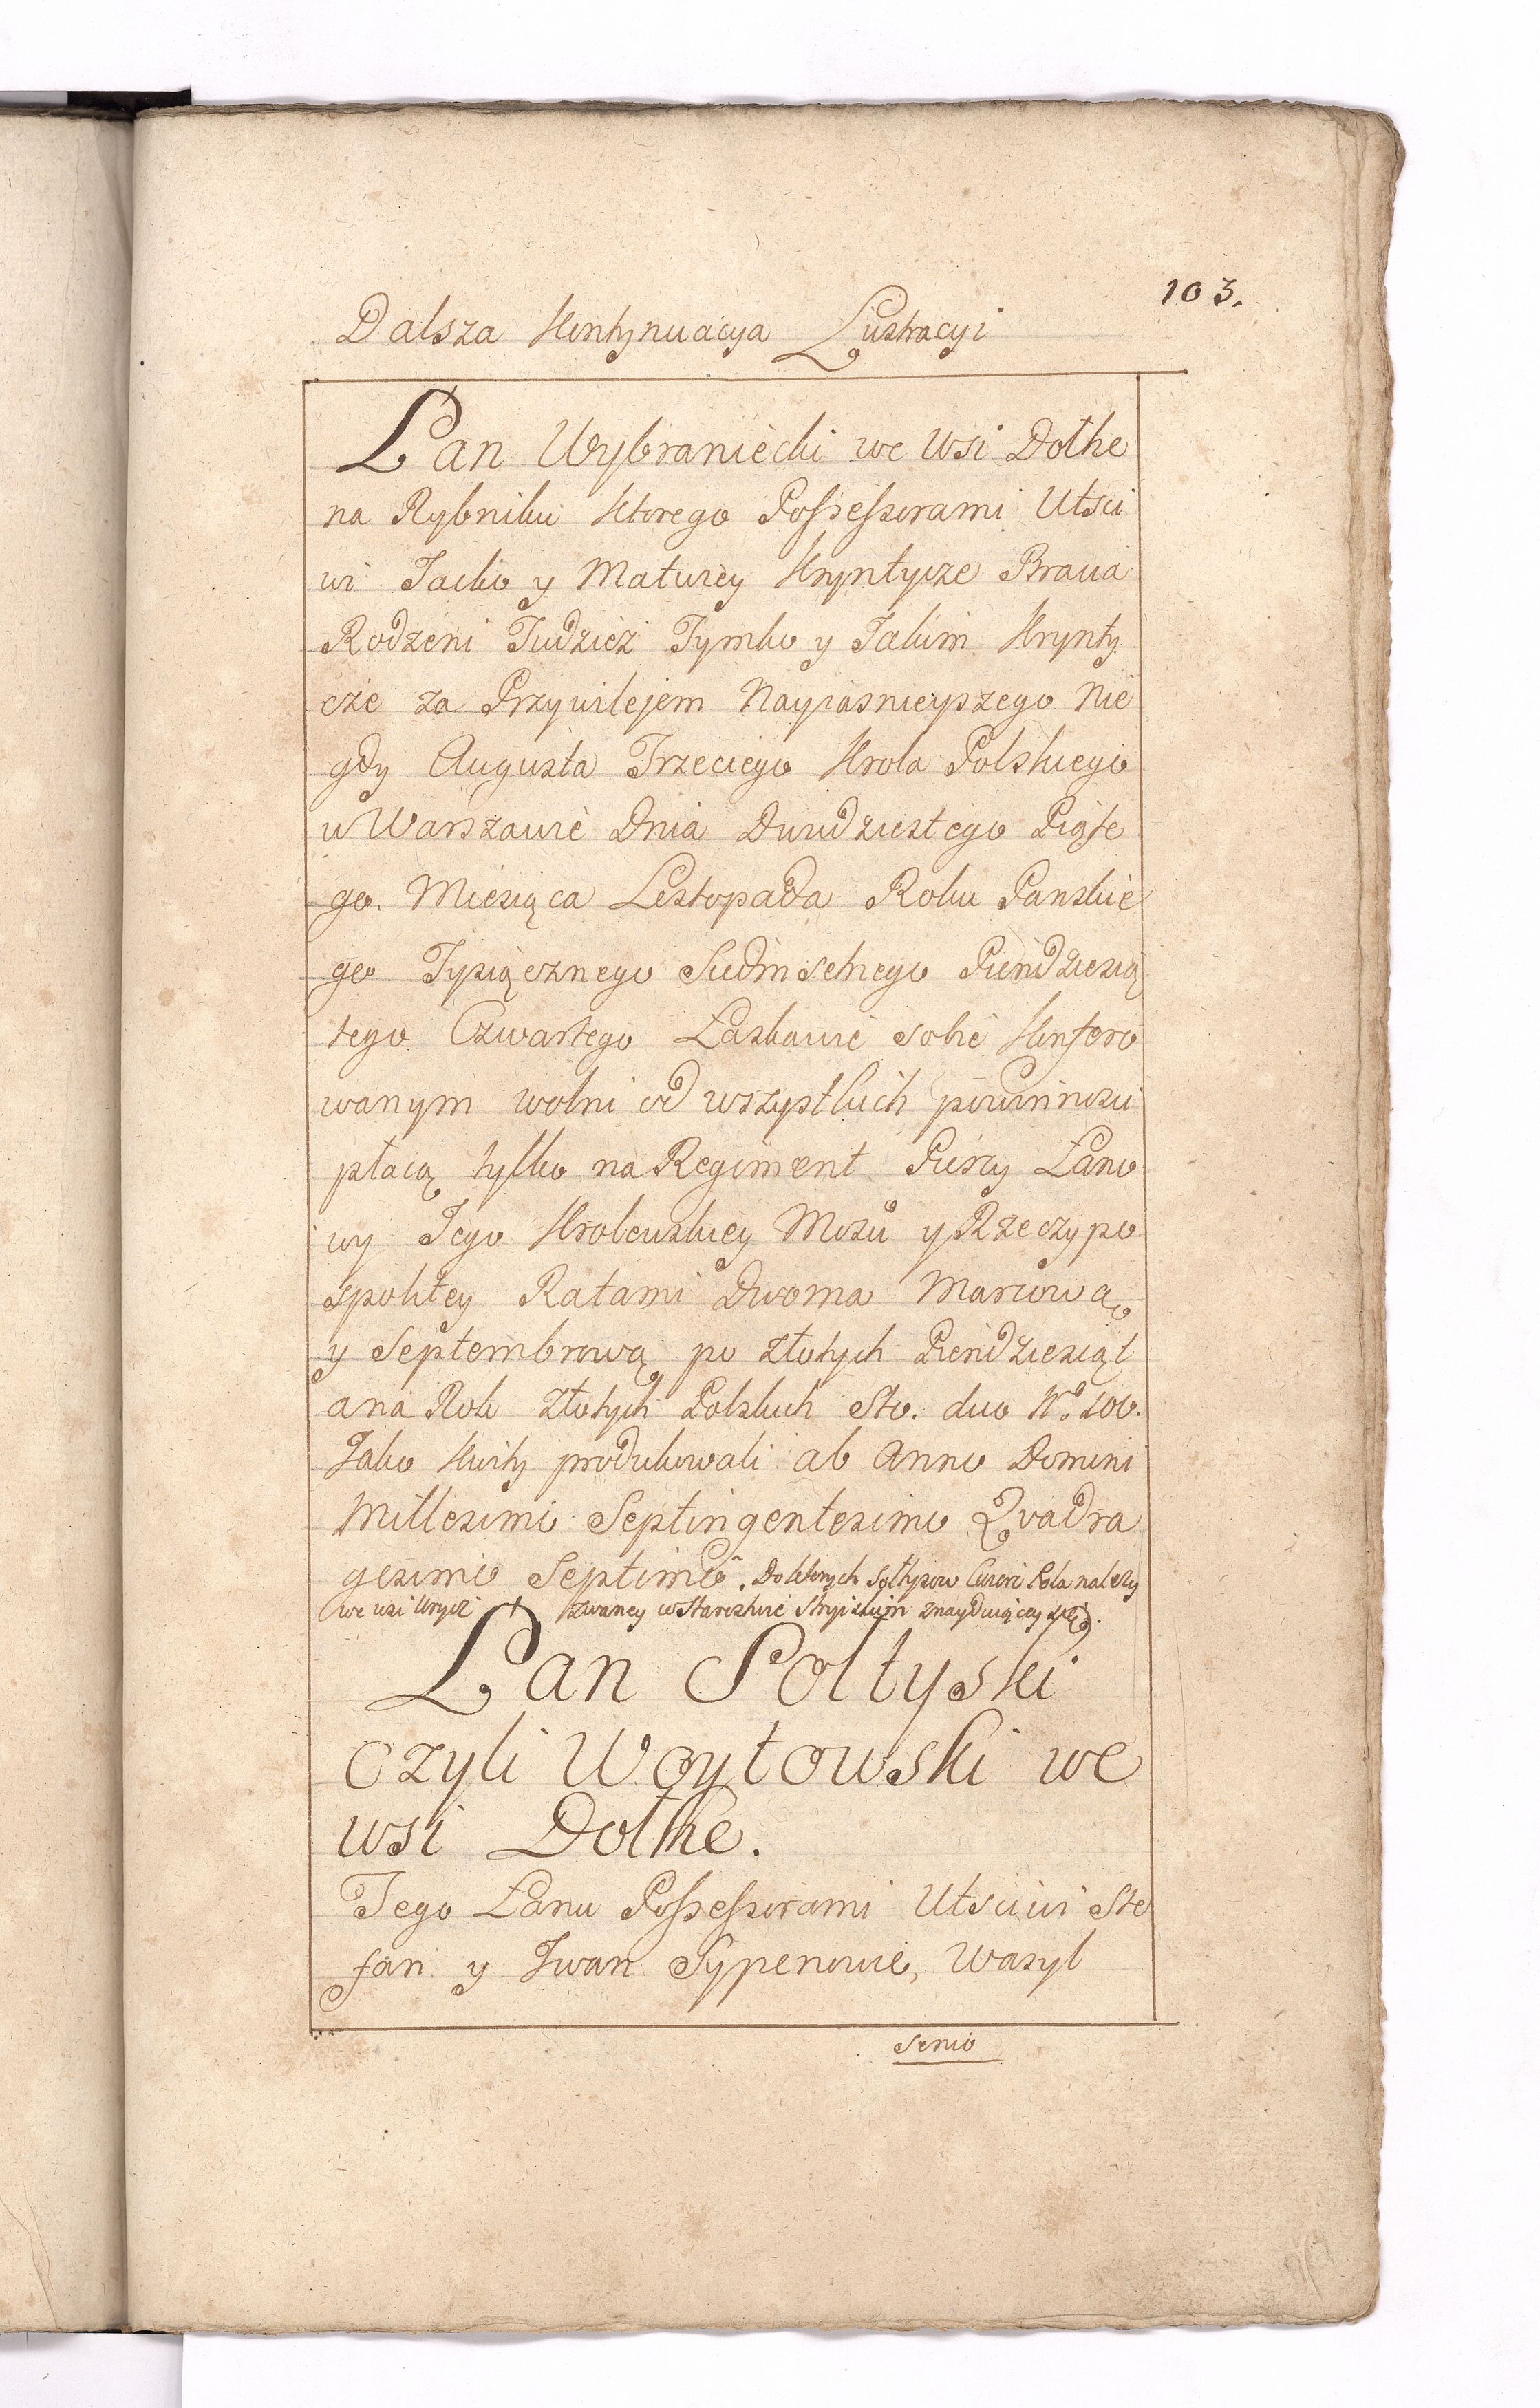 103.
Dalsza Kontynuacya Lustracyi
Łan Wybraniecki we Wsi Dołhe
na Rybniku ktorego Possessorami Utsci
wi Jacko y Matwiey Hryntycze Bracia
Rodzeni Tudzież Tymko y Jakim Hrynty
cze za Przywilejem Nayiasnieyszego Nie
gdy Augusta Trzeciego Krola Polskiego
w Warszawie Dnia Dwudziestego Piąte
go. Miesiąca Listopada Roku Panskie
go Tysiącznego Siedmsetnego Piendziesią
tego Czwartego Łaskawie sobie Konfero
wanym wolni od wszystkich powinnosci
płacą tylko na Regiment Pieszy Łano
wy Jego Krolewskiey Mosci y Rzeczypo
spolitey Ratami Dwoma Marcową
y Septembrową po złotych Piendziesiąt
a na Rok złotych Polskich Sto. duo No. 100.
Jako kwity produkowali ab Anno Domini
Millesimo Septingentesimo Qvadra
gesimo Septimo. Do ktorych Sołtysow Cwierć Pola należy
we wsi Urycz zwaney w Starostwie Stryiskim znayduiącey się.
Łan Sołtyski
czyli Woytowski we
wsi Dołhe.
Tego Łanu Possessorami Utsciwi Ste
fan y Iwan Sypenowie, Wasyl
Senio